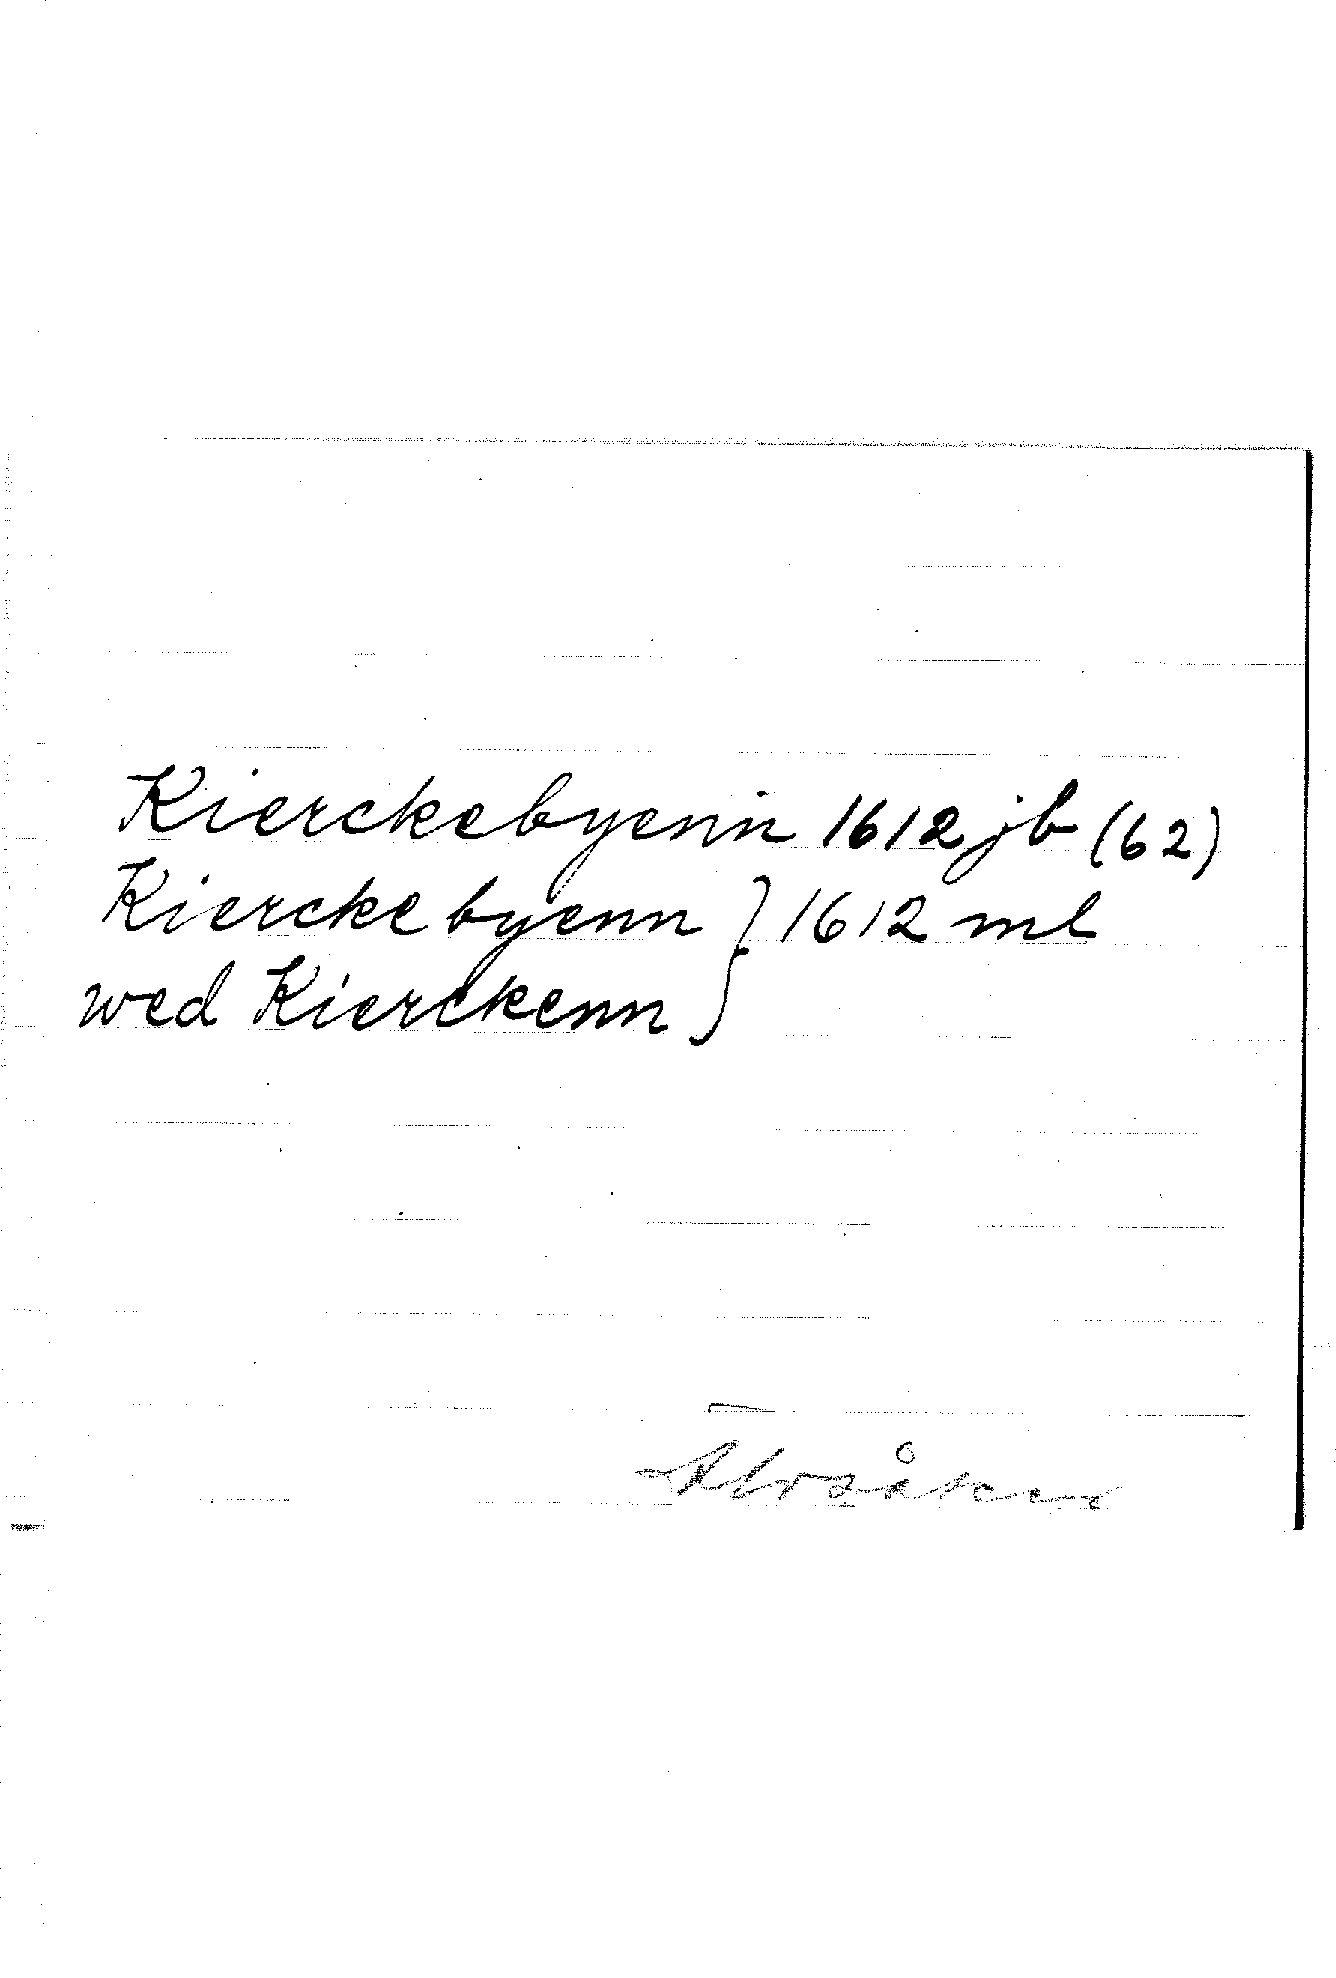 Kierckebyenn 1612 jb (62)
Kierckebyenn } 1612 ml
wed Kierckenn }
Alvsåker